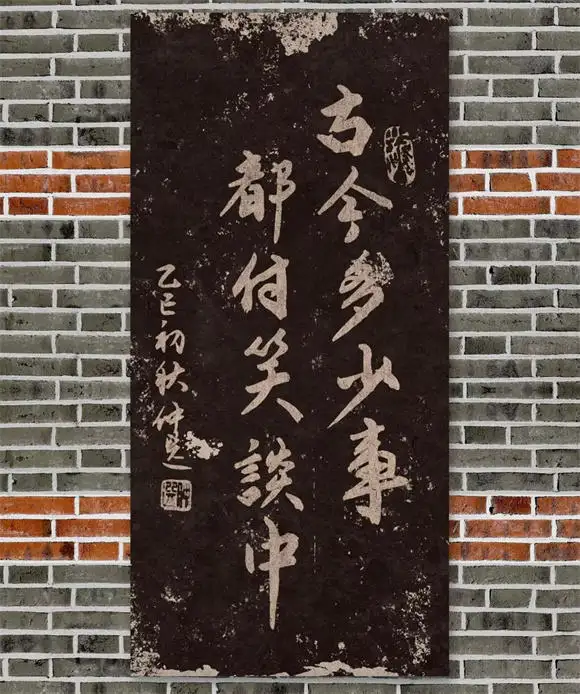 古今多少事
都付笑談中
乙巳初秋仲